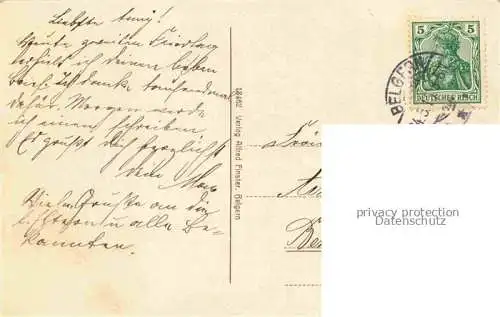 Liebste Anny!
Heute zweiten Feiertag
erhielt ich deinen lieben
Brief. Ich danke tausendmal
dafür. Morgen werde
ich einen schreiben
Es grüßt dich herzlichst
dein Max
Viele Grüße an die
Eltern u. alle Be-
kannten.
18462 Verlag Alfred Finster, Belgern
5 5
DEUTSCHES REICH
BELGERN
privacy protection
Datenschutz